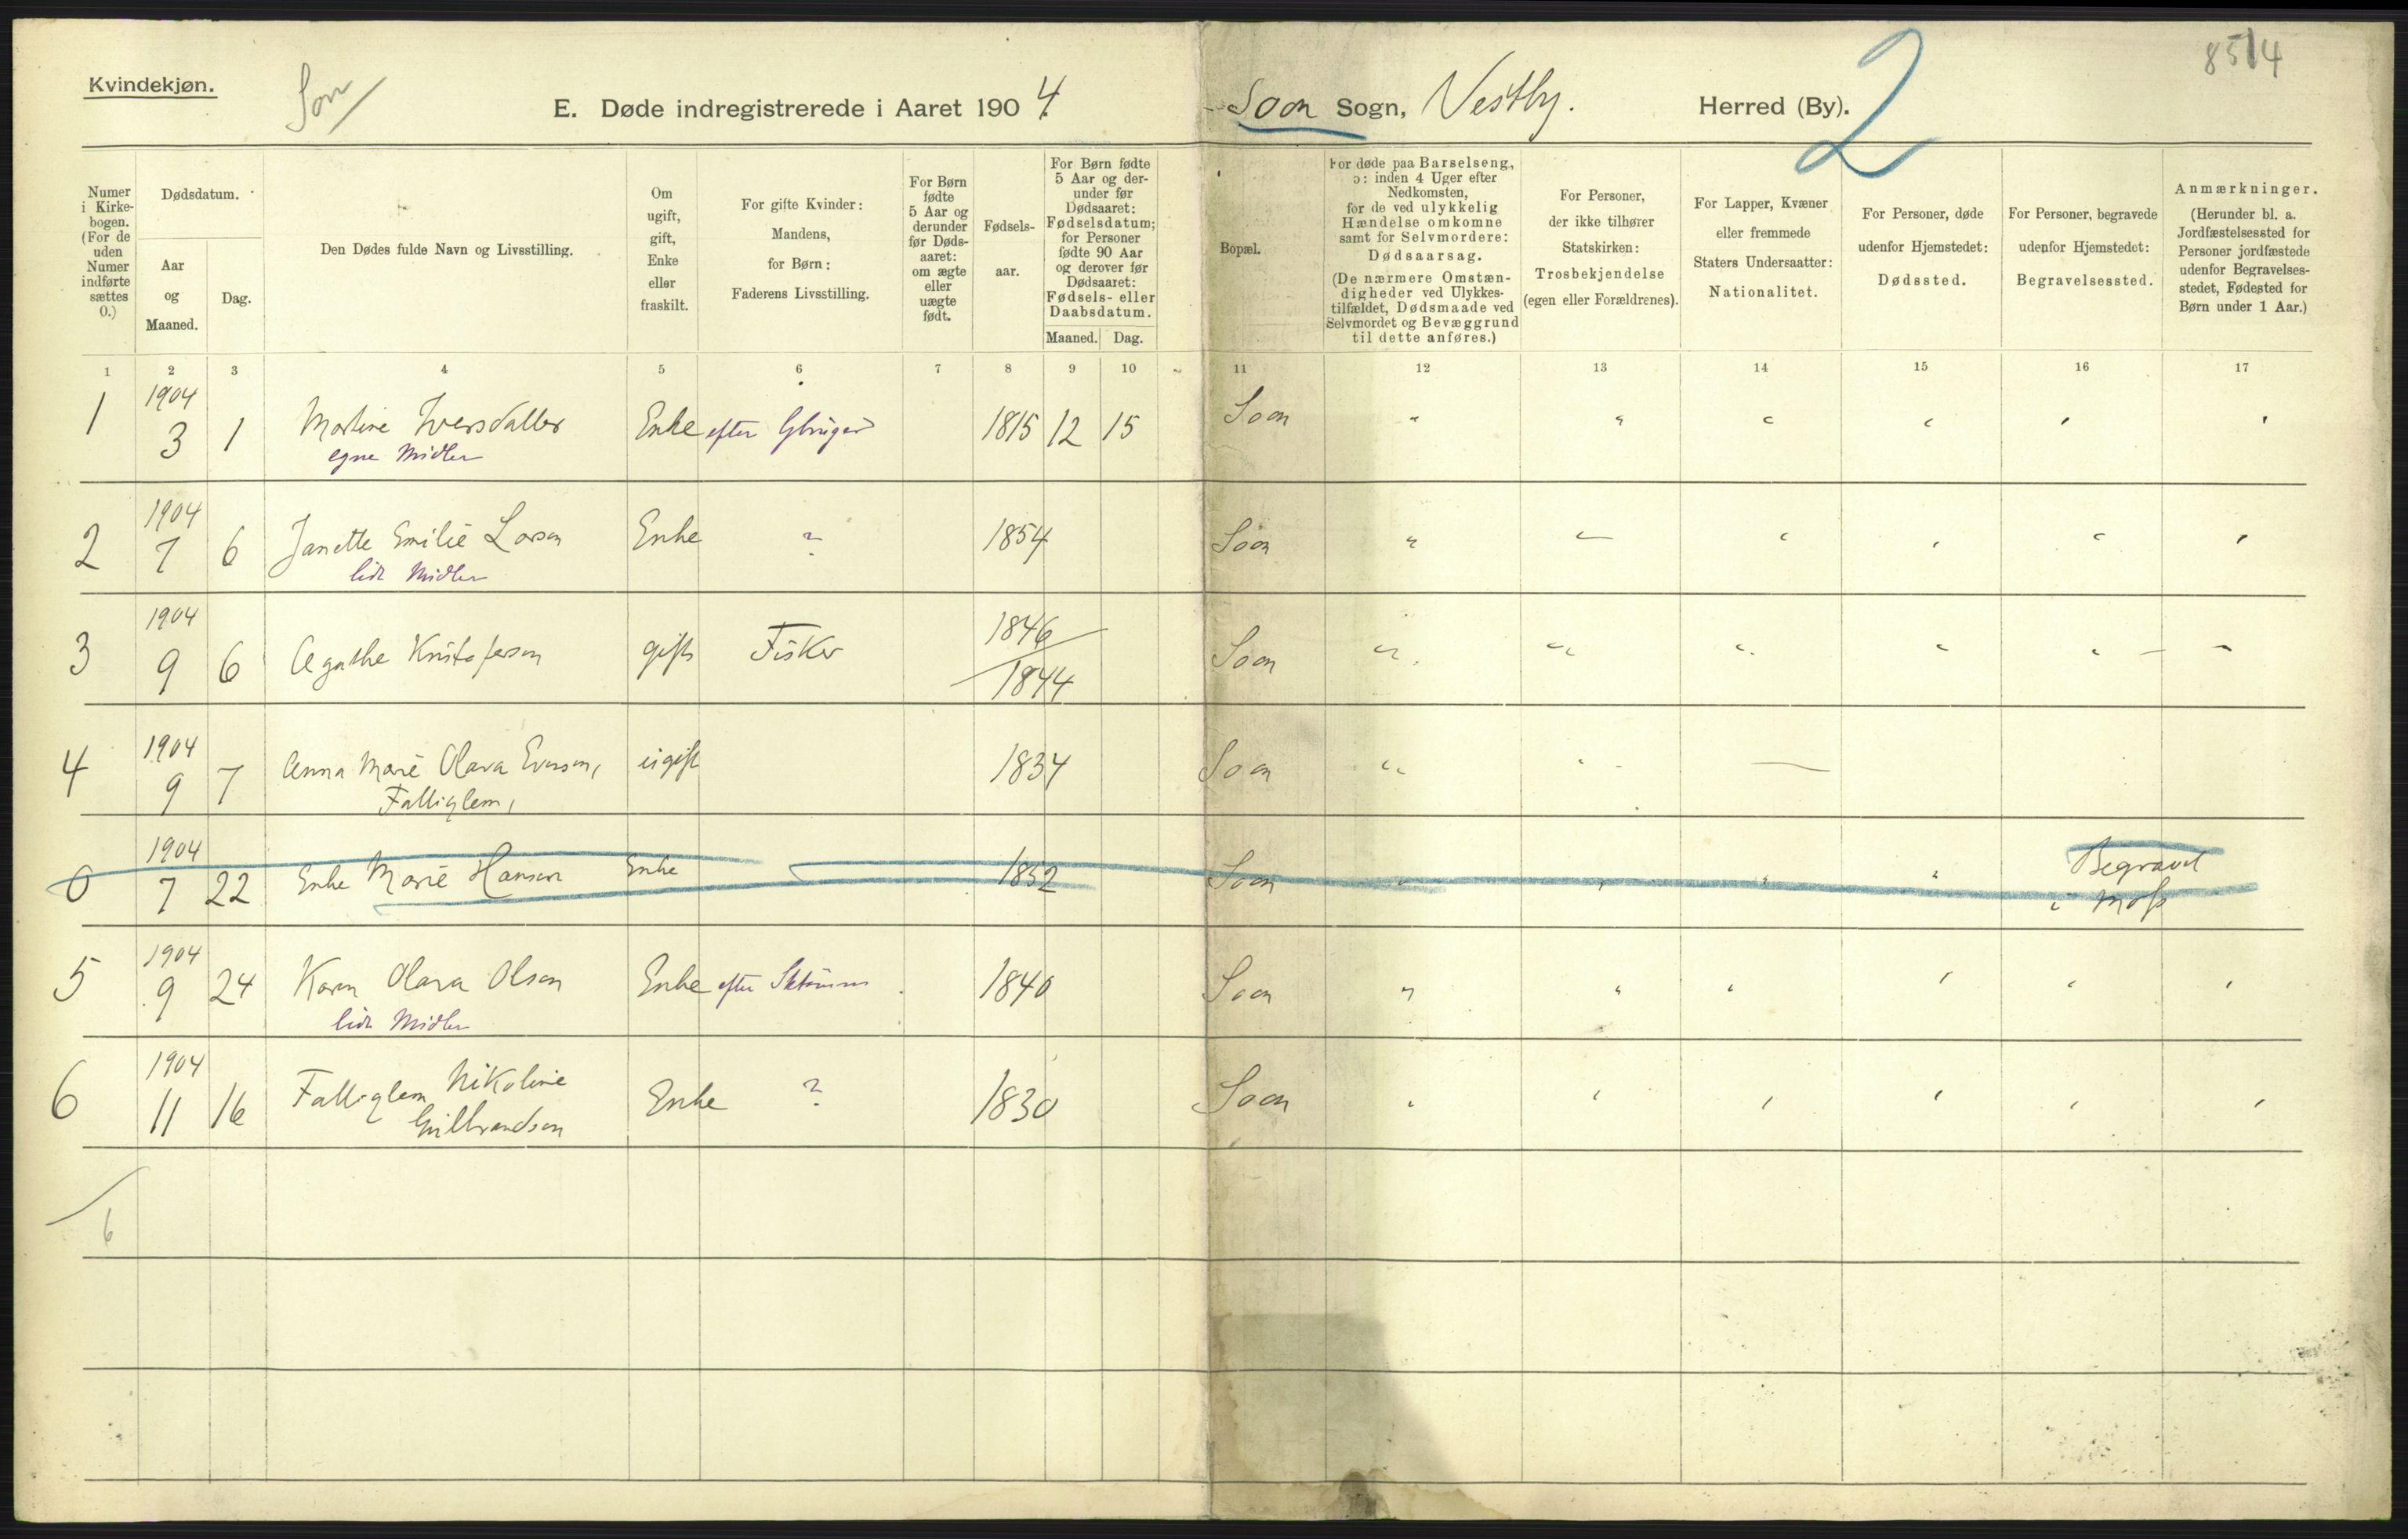 Kvindekjøn.
Son
E. Døde indregistrerede i Aaret 1904.
Soon Sogn, Vestby. Herred (By).
2
8514
Numer i Kirkebogen. (For de uden Numer indførte sættes 0.)
Dødsdatum.
Aar og Maaned.
Dag.
Den Dødes fulde Navn og Livsstilling.
Om ugift, gift, Enke eller fraskilt.
For gifte Kvinder: Mandens, for Børn: Faderens Livsstilling.
For Børn fødte 5 Aar og derunder før Dødsaaret: om ægte eller uægte født.
Fødselsaar.
For Børn fødte 5 Aar og derunder før Dødsaaret: Fødselsdatum; for Personer fødte 90 Aar og derover før Dødsaaret: Fødsels- eller Daabsdatum.
Maaned. Dag.
Bopæl.
For døde paa Barselseng, ɔ: inden 4 Uger efter Nedkomsten, for de ved ulykkelig Hændelse omkomne samt for Selvmordere: Dødsaarsag.
(De nærmere Omstændigheder ved Ulykkestilfældet, Dødsmaade ved Selvmordet og Bevæggrund til dette anføres.)
For Personer, der ikke tilhører Statskirken: Trosbekjendelse (egen eller Forældrenes).
For Lapper, Kvæner eller fremmede Staters Undersaatter: Nationalitet.
For Personer, døde udenfor Hjemstedet: Dødssted.
For Personer, begravede udenfor Hjemstedet: Begravelsessted.
Anmærkninger. (Herunder bl. a. Jordfæstelsessted for Personer jordfæstede udenfor Begravelsesstedet, Fødested for Børn under 1 Aar.)
1 2 3 4 5 6 7 8 9 10 11 12 13 14 15 16 17
1904
1 3 1 Martine Iversdatter Enke efter Gbruger 1815 12 15 Soon " " " " " "
egne Midler
1904
2 7 6 Janette Emilie Larsen Enke ? 1854 Soon " " " " " "
lidt Midler
1904
3 9 6 Agathe Kristofersen gift Fisker 1846 Soon " " " " " "
1844
1904
4 9 7 Anna Marie Olava Eversen, ugift 1834 Soon " "
Fattiglem,
1904
0 7 22 Enke Marie Hansen Enke 1832 Soon " " " " Begravet
i Moss
1904
5 9 24 Karen Olava Olsen Enke efter 1840 Soon " " " " " "
lidt Midler
1904
6 11 16 Fattiglem Nikoline Enke ? 1830 Soon " " " " " "
Gulbrandsen
6